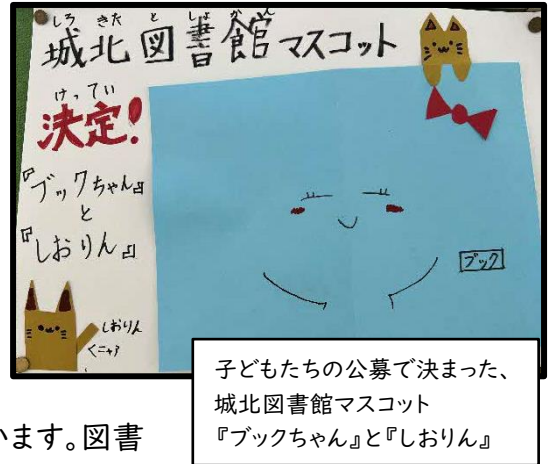 しろ きた と しょ かん
城北図書館マスコット
けってい
決定!
『ブックちゃん』
と
『しおりん』
ブック
しおりん
子どもたちの公募で決まった、
城北図書館マスコット
『ブックちゃん』と『しおりん』
います。図書